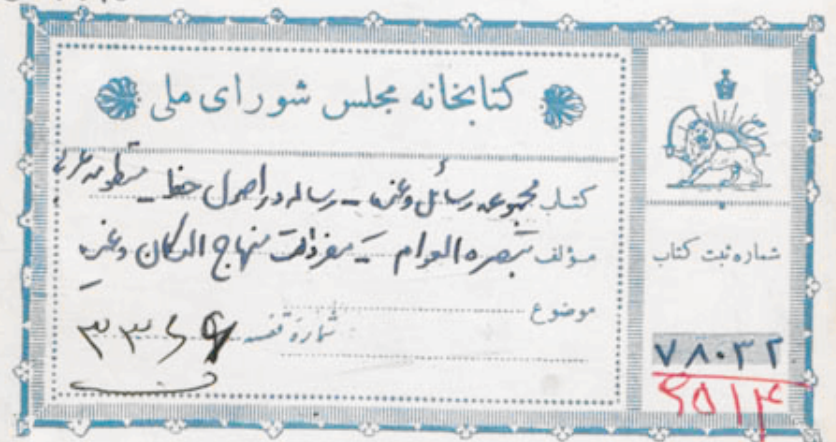 کتابخانه مجلس شورای ملی
کتاب مجموعه رسائل وغیره - رساله در اصول خط - منظومه عربی
مؤلف تبصره العوام - مفردات منهاج الدکان وغیره
موضوع
شماره قفسه
شماره ثبت کتاب
۷۸۰۳۲
۶۵۱۴